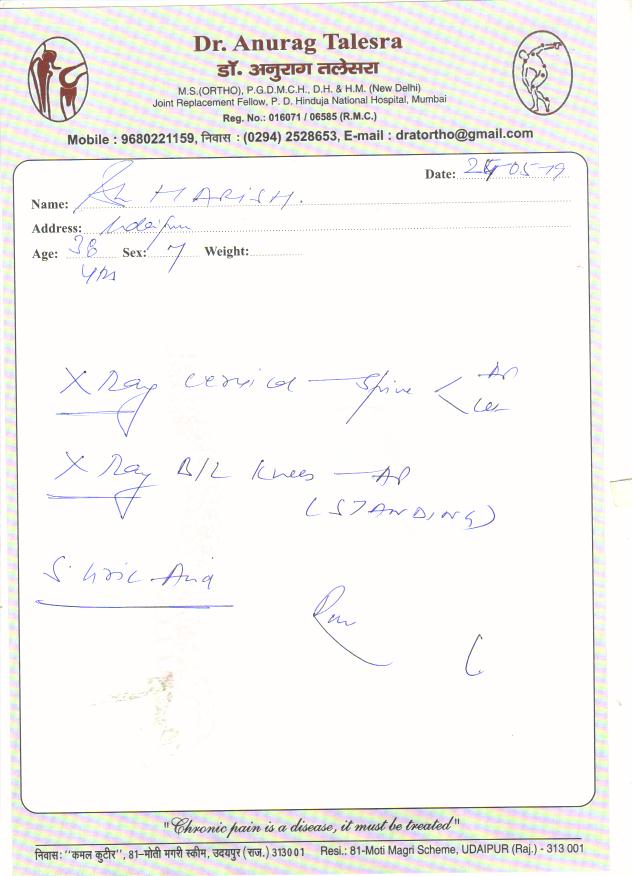 Dr. Anurag Talesra
डॉ. अनुराग तलेसरा
M.S.(ORTHO), P.G.D.M.C.H., D.H. & H.M. (New Delhi)
Joint Replacement Fellow, P. D. Hinduja National Hospital, Mumbai
Reg. No.: 016071 / 06585 (R.M.C.)
Mobile : 9680221159, निवास : (0294) 2528653, E-mail : dratortho@gmail.com
Date: 05-19
Name: HARISH.
Address: Udaipur
Age: 38 Sex: Weight:
yrs
X Ray cervical Spine < AP
Lat
X Ray B/L Knees — AP
(STANDING)
S. Uric Acid
"Chronic pain is a disease, it must be treated"
निवास: "कमल कुटीर", 81-मोती मगरी स्कीम, उदयपुर (राज.) 313001 Resi.: 81-Moti Magri Scheme, UDAIPUR (Raj.) - 313 001